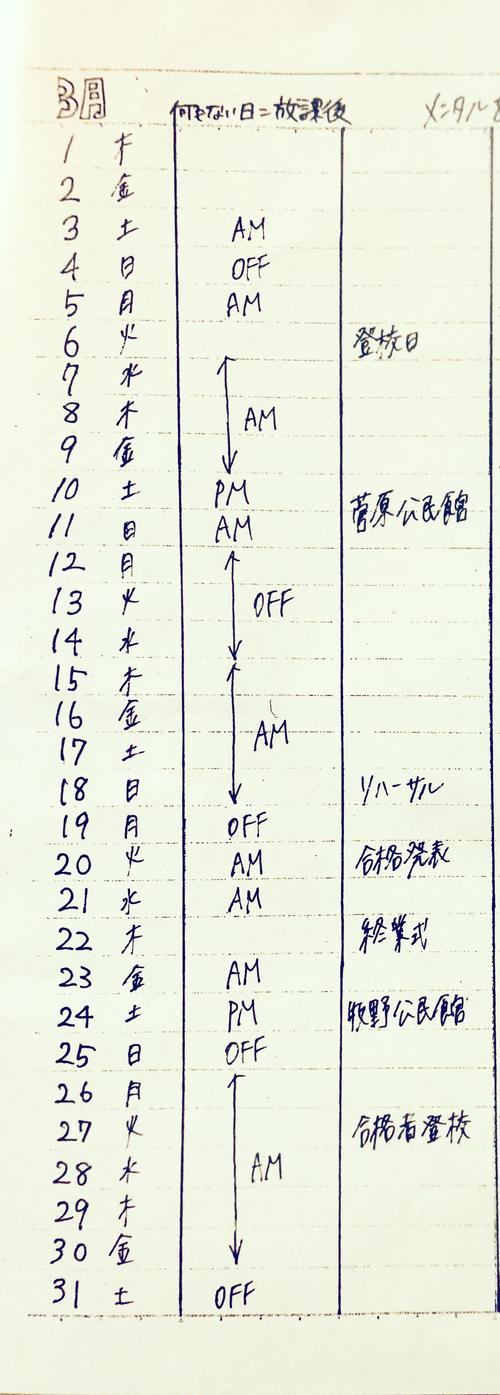 3月 何もない日=放課後 メンタル
1 木
2 金
3 土 AM
4 日 OFF
5 月 AM
6 火 登校日
7 水
8 木 AM
9 金
10 土 PM 菅原公民館
11 日 AM
12 月
13 火 OFF
14 水
15 木
16 金 AM
17 土
18 日 リハーサル
19 月 OFF
20 火 AM 合格発表
21 水 AM
22 木 終業式
23 金 AM
24 土 PM 牧野公民館
25 日 OFF
26 月
27 火 合格者登校
28 水 AM
29 木
30 金
31 土 OFF